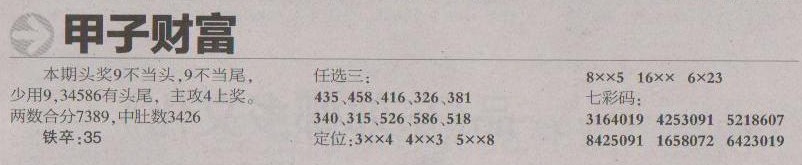 甲子财富
本期头奖9不当头,9不当尾,
少用9,34586有头尾，主攻4上奖。
两数合分7389,中肚数3426
铁卒:35
任选三:
435、458、416、326、381
340、315、526、586、518
定位:3××4 4××3 5××8
8××5 16×× 6×23
七彩码:
3164019 4253091 5218607
8425091 1658072 6423019